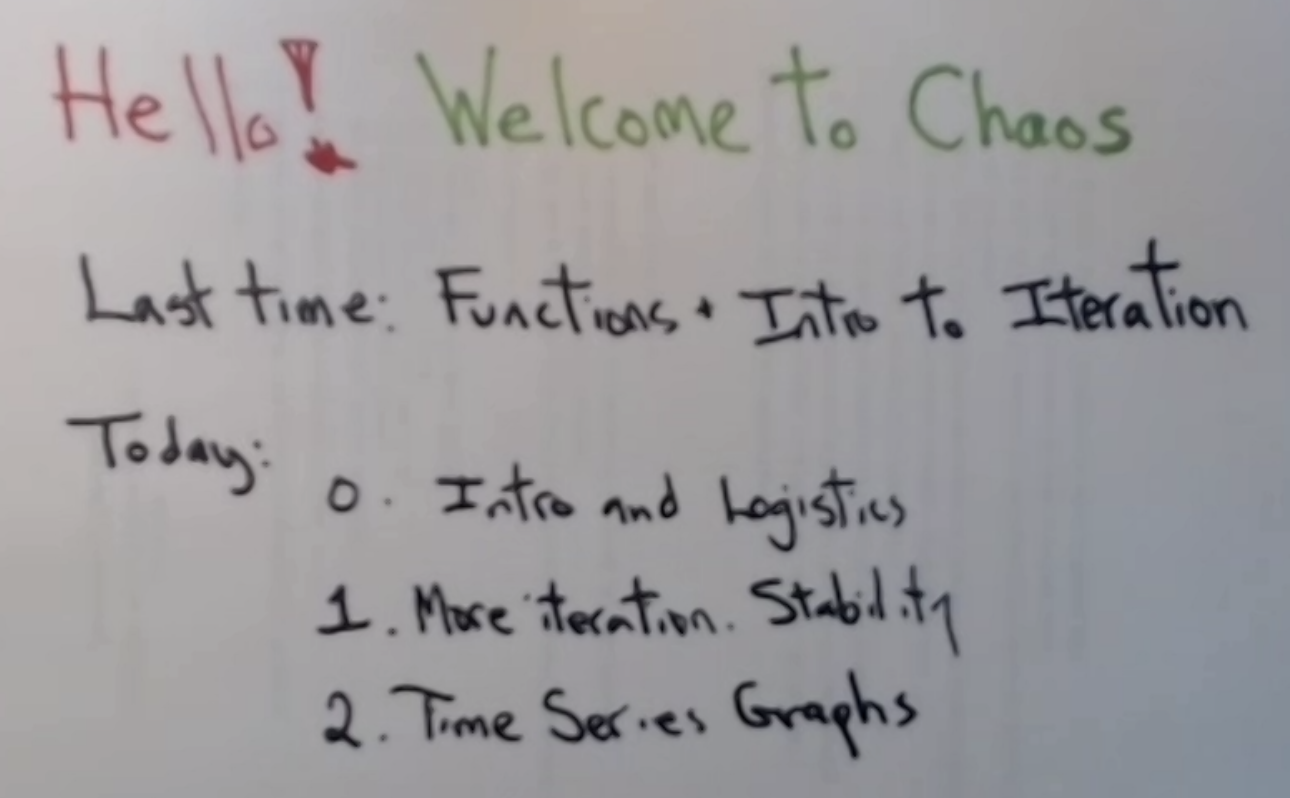 Hello! Welcome to Chaos
Last time: Functions + Intro to Iteration
Today:
0. Intro and Logistics
1. More iteration. Stability
2. Time Series Graphs